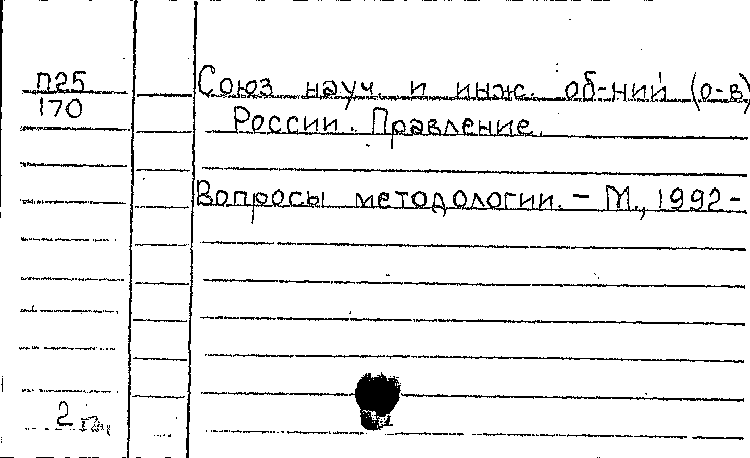 П25
170
Союз науч. и инж. об-ний (о-в)
России. Правление.
Вопросы методологии. – М., 1992-
2